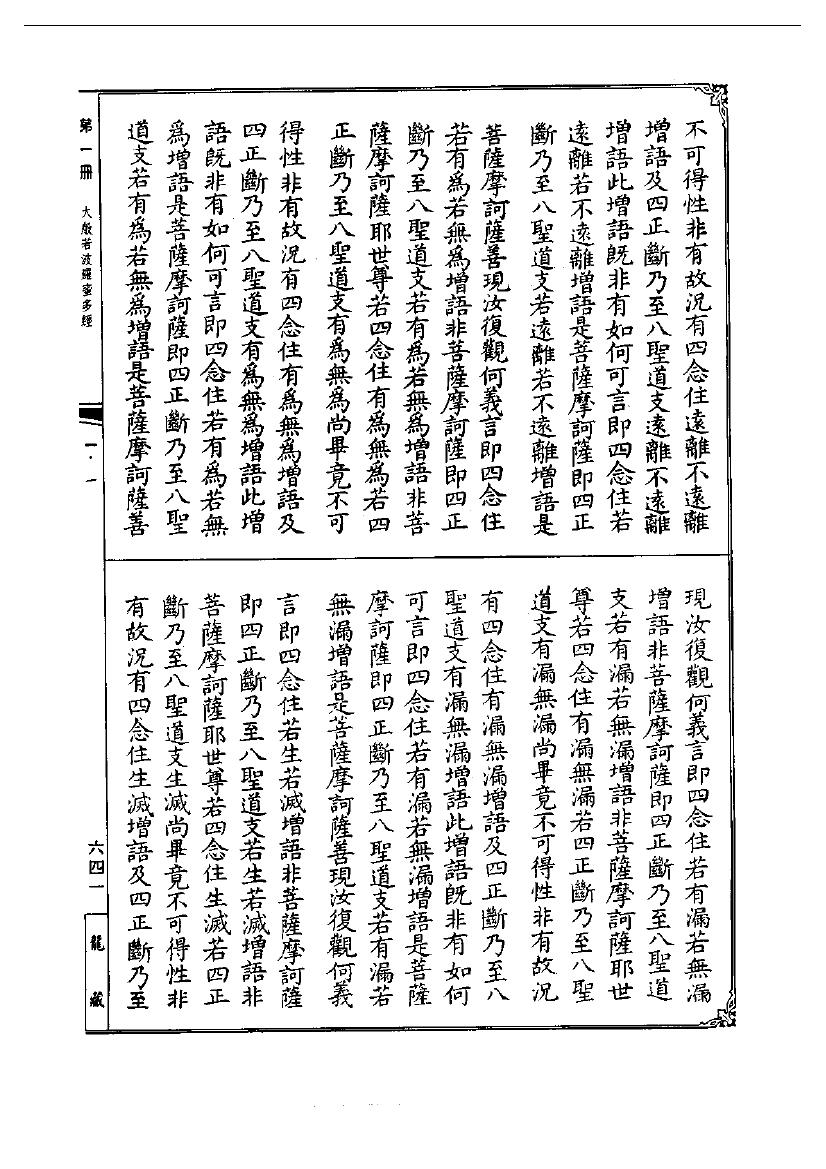 不可得性非有故況有四念住遠離不遠離
增語及四正斷乃至八聖道支遠離不遠離
增語此增語既非有如何可言即四念住若
遠離若不遠離增語是菩薩摩訶薩即四正
斷乃至八聖道支若遠離若不遠離增語是
菩薩摩訶薩善現汝復觀何義言即四念住
若有為若無為增語非菩薩摩訶薩即四正
斷乃至八聖道支若有為若無為增語非菩
薩摩訶薩耶世尊若四念住有為無為若四
正斷乃至八聖道支有為無為尚畢竟不可
得性非有故況有四念住有為無為增語及
四正斷乃至八聖道支有為無為增語此增
語既非有如何可言即四念住若有為若無
為增語是菩薩摩訶薩即四正斷乃至八聖
道支若有為若無為增語是菩薩摩訶薩善
現汝復觀何義言即四念住若有漏若無漏
增語非菩薩摩訶薩即四正斷乃至八聖道
支若有漏若無漏增語非菩薩摩訶薩耶世
尊若四念住有漏無漏若四正斷乃至八聖
道支有漏無漏尚畢竟不可得性非有故況
有四念住有漏無漏增語及四正斷乃至八
聖道支有漏無漏增語此增語既非有如何
可言即四念住若有漏若無漏增語是菩薩
摩訶薩即四正斷乃至八聖道支若有漏若
無漏增語是菩薩摩訶薩善現汝復觀何義
言即四念住若生若滅增語非菩薩摩訶薩
即四正斷乃至八聖道支若生若滅增語非
菩薩摩訶薩耶世尊若四念住生滅若四正
斷乃至八聖道支生滅尚畢竟不可得性非
有故況有四念住生滅增語及四正斷乃至
第一冊 大般若波羅蜜多經
一·一
六四一
龍藏